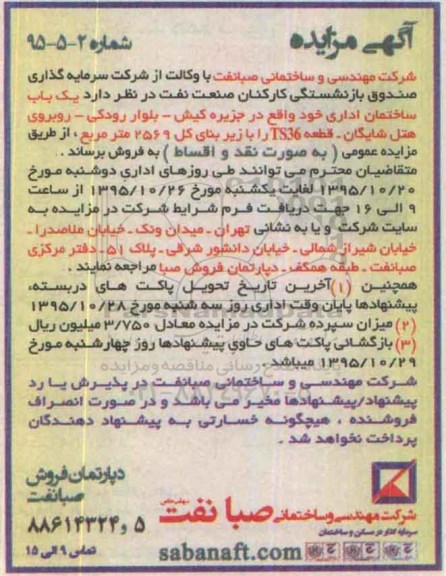 آگهی مزایده
شماره ۲-۵-۹۵
شرکت مهندسی و ساختمانی صبانفت با وکالت از شرکت سرمایه گذاری
صندوق بازنشستگی کارکنان صنعت نفت در نظر دارد یک باب
ساختمان اداری خود واقع در جزیره کیش - بلوار رودکی - روبروی
هتل شایگان - قطعه TS36 را با زیر بنای کل ۲۵۶۹ متر مربع ، از طریق
مزایده عمومی ( به صورت نقد و اقساط ) به فروش برساند .
متقاضیان محترم می توانند طی روزهای اداری دوشنبه مورخ
۱۳۹۵/۱۰/۲۰ لغایت یکشنبه مورخ ۱۳۹۵/۱۰/۲۶ از ساعت
۹ الی ۱۶ جهت دریافت فرم شرایط شرکت در مزایده به
سایت شرکت و یا به نشانی تهران - میدان ونک - خیابان ملاصدرا -
خیابان شیراز شمالی - خیابان دانشور شرقی - پلاک ۵۱ - دفتر مرکزی
صبانفت - طبقه همکف - دپارتمان فروش صبا مراجعه نمایند .
همچنین (۱) آخرین تاریخ تحویل پاکت های دربسته،
پیشنهادها پایان وقت اداری روز سه شنبه مورخ ۱۳۹۵/۱۰/۲۸
(۲) میزان سپرده شرکت در مزایده معادل ۳/۷۵۰ میلیون ریال
(۳) بازگشائی پاکت های حاوی پیشنهادها روز چهارشنبه مورخ
۱۳۹۵/۱۰/۲۹ میباشد .
شرکت مهندسی و ساختمانی صبانفت در پذیرش یا رد
پیشنهاد/پیشنهادها مخیر می باشد و در صورت انصراف
فروشنده ، هیچگونه خسارتی به پیشنهاد دهندگان
پرداخت نخواهد شد .
دپارتمان فروش
صبانفت
۵ و ۸۸۶۱۴۳۲۴
تماس ۹ الی ۱۵
شرکت مهندسی و ساختمانی صبا نفت
سرمایه گذار در مسکن و ساختمان
sabanaft.com